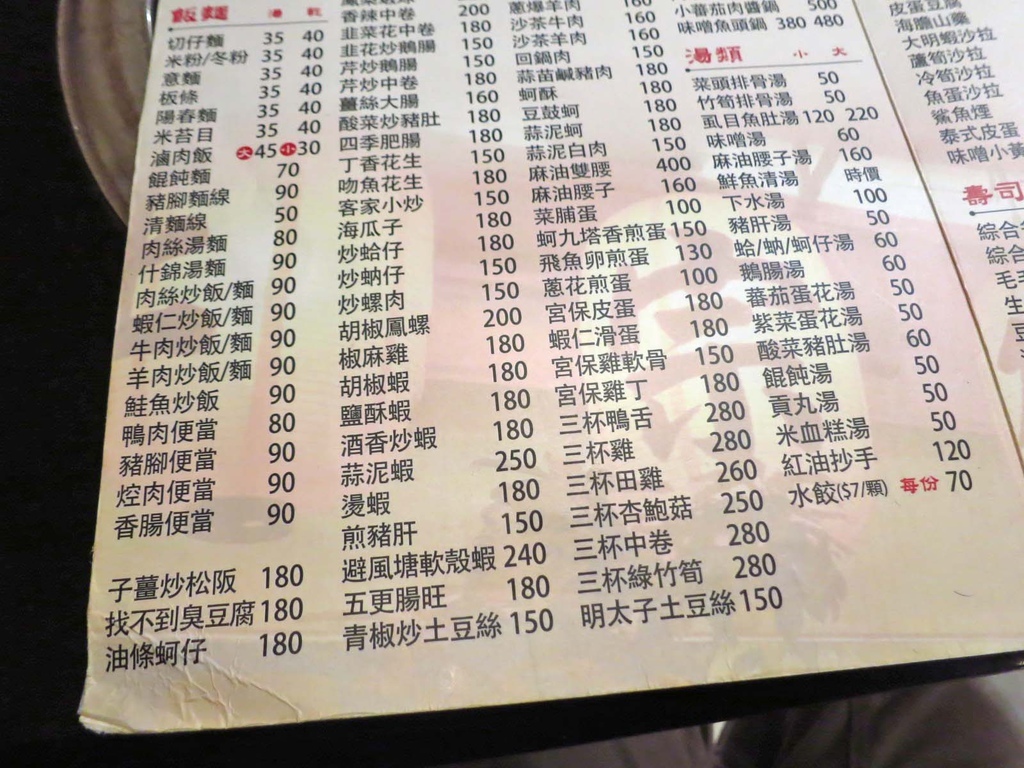 飯麵 湯 乾
切仔麵 35 40
米粉/冬粉 35 40
意麵 35 40
板條 35 40
陽春麵 35 40
米苔目 35 40
滷肉飯 大45 小30
餛飩麵 70
豬腳麵線 90
清麵線 50
肉絲湯麵 80
什錦湯麵 90
肉絲炒飯/麵 90
蝦仁炒飯/麵 90
牛肉炒飯/麵 90
羊肉炒飯/麵 90
鮭魚炒飯 90
鴨肉便當 80
豬腳便當 90
焢肉便當 90
香腸便當 90
子薑炒松阪 180
找不到臭豆腐 180
油條蚵仔 180
香辣中卷 200
韭菜花中卷 180
韭花炒鵝腸 150
芹炒鵝腸 150
芹炒中卷 180
薑絲大腸 160
酸菜炒豬肚 180
四季肥腸 180
丁香花生 150
吻魚花生 180
客家小炒 150
海瓜子 180
炒蛤仔 180
炒蚋仔 150
炒螺肉 150
胡椒鳳螺 200
椒麻雞 180
胡椒蝦 180
鹽酥蝦 180
酒香炒蝦 180
蒜泥蝦 250
燙蝦 180
煎豬肝 150
避風塘軟殼蝦 240
五更腸旺 180
青椒炒土豆絲 150
蔥爆羊肉 160
沙茶牛肉 160
沙茶羊肉 160
回鍋肉 150
蒜苗鹹豬肉 180
蚵酥 180
豆鼓蚵 180
蒜泥蚵 180
蒜泥白肉 150
麻油雙腰 400
麻油腰子 160
菜脯蛋 100
蚵九塔香煎蛋 150
飛魚卵煎蛋 130
蔥花煎蛋 100
宮保皮蛋 180
蝦仁滑蛋 180
宮保雞軟骨 150
宮保雞丁 180
三杯鴨舌 280
三杯雞 280
三杯田雞 260
三杯杏鮑菇 250
三杯中卷 280
三杯綠竹筍 280
明太子土豆絲 150
小番茄肉醬鍋 500
味噌魚頭鍋 380 480
湯類 小 大
菜頭排骨湯 50
竹筍排骨湯 50
虱目魚肚湯 120 220
味噌湯 60
麻油腰子湯 160
鮮魚清湯 時價
下水湯 100
豬肝湯 50
蛤/蚋/蚵仔湯 60
鵝腸湯 60
番茄蛋花湯 50
紫菜蛋花湯 50
酸菜豬肚湯 60
餛飩湯 50
貢丸湯 50
米血糕湯 50
紅油抄手 120
水餃($7/顆) 每份 70
皮蛋豆腐
海膽山藥
大明蝦沙拉
蘆筍沙拉
冷筍沙拉
魚蛋沙拉
鯊魚煙
泰式皮蛋
味噌小黃
壽司
綜合
綜合
毛
生
豆